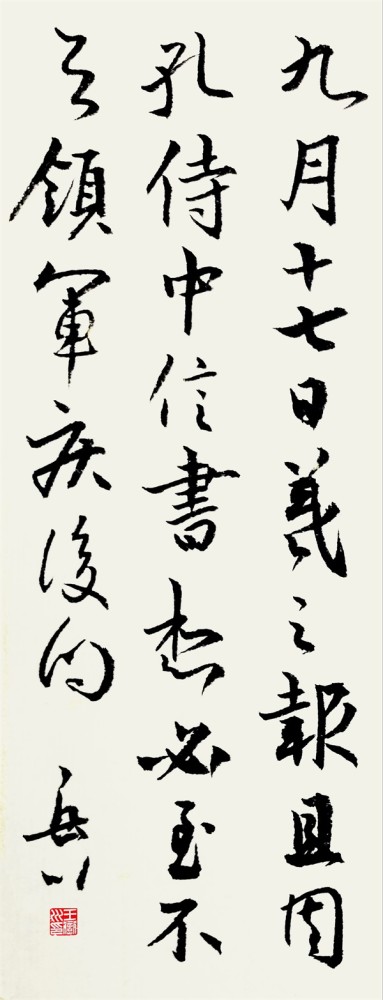 九月十七日羲之報且因
孔侍中信書想必至不
知領軍疾後問
岳川